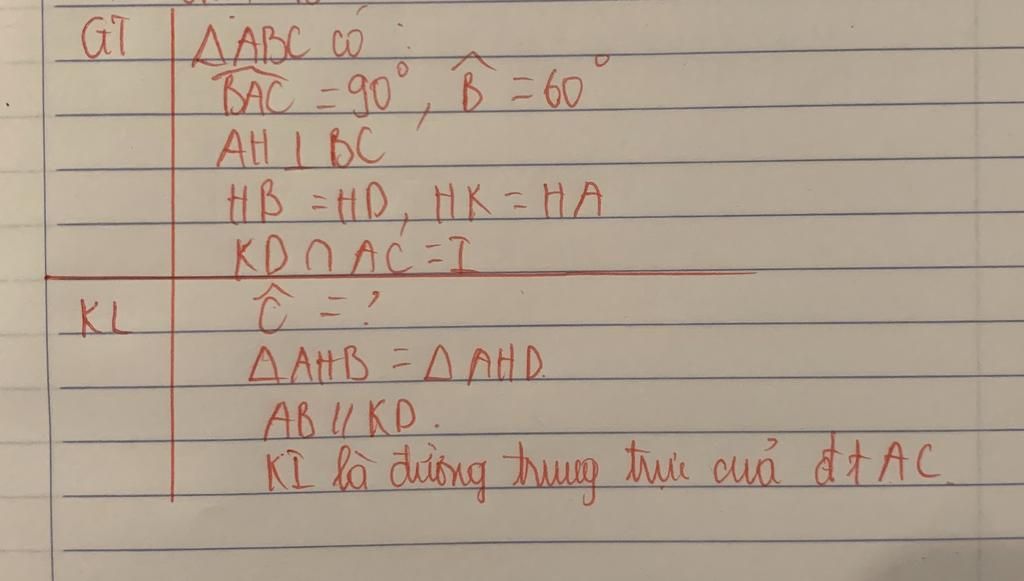 GT ΔABC có :
\widehat{BAC} = 90°, \widehat{B} = 60°
AH ⊥ BC
HB = HD, HK = HA
KD ∩ AC = I
KL \widehat{C} = ?
ΔAHB = ΔAHD.
AB // KD.
KI là đường trung trực cuả đt AC.